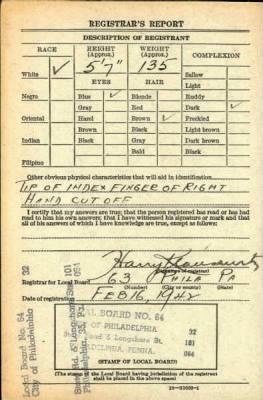 REGISTRAR'S REPORT
DESCRIPTION OF REGISTRANT
RACE HEIGHT (Approx.) WEIGHT (Approx.) COMPLEXION
White ✓ 5'7" 135 Sallow
Light
EYES HAIR
Negro Blue ✓ Blonde Ruddy
Gray Red Dark ✓
Oriental Hazel Brown ✓ Freckled
Brown Black Light brown
Indian Black Gray Dark brown
Bald Black
Filipino
Other obvious physical characteristics that will aid in identification
TIP OF INDEX FINGER OF RIGHT
HAND CUT OFF
I certify that my answers are true; that the person registered has read or has had
read to him his own answers; that I have witnessed his signature or mark and that
all of his answers of which I have knowledge are true, except as follows:
Harry
(Signature of registrar)
Registrar for Local Board 63 PHILA PA
(Number) (City or county) (State)
Date of registration FEB 16, 1942
LOCAL BOARD NO. 64
CITY OF PHILADELPHIA
State Road & Longshore St.
PHILADELPHIA, PENNA.
32
101
064
(STAMP OF LOCAL BOARD)
(The stamp of the Local Board having jurisdiction of the registrant
shall be placed in the above space)
Local Board No. 64 32
City of Philadelphia 101
State Rd. & Longshore St. 064
Philadelphia, Pa.